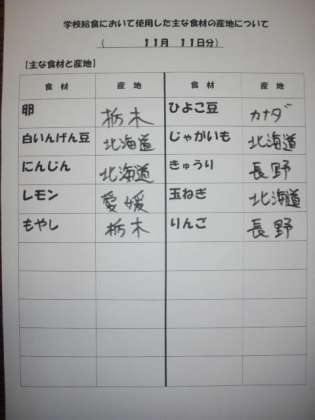 学校給食において使用した主な食材の産地について
( 11月 11日分)
【主な食材と産地】
食材 産地 食材 産地
卵 栃木 ひよこ豆 カナダ
白いんげん豆 北海道 じゃがいも 北海道
にんじん 北海道 きゅうり 長野
レモン 愛媛 玉ねぎ 北海道
もやし 栃木 りんご 長野